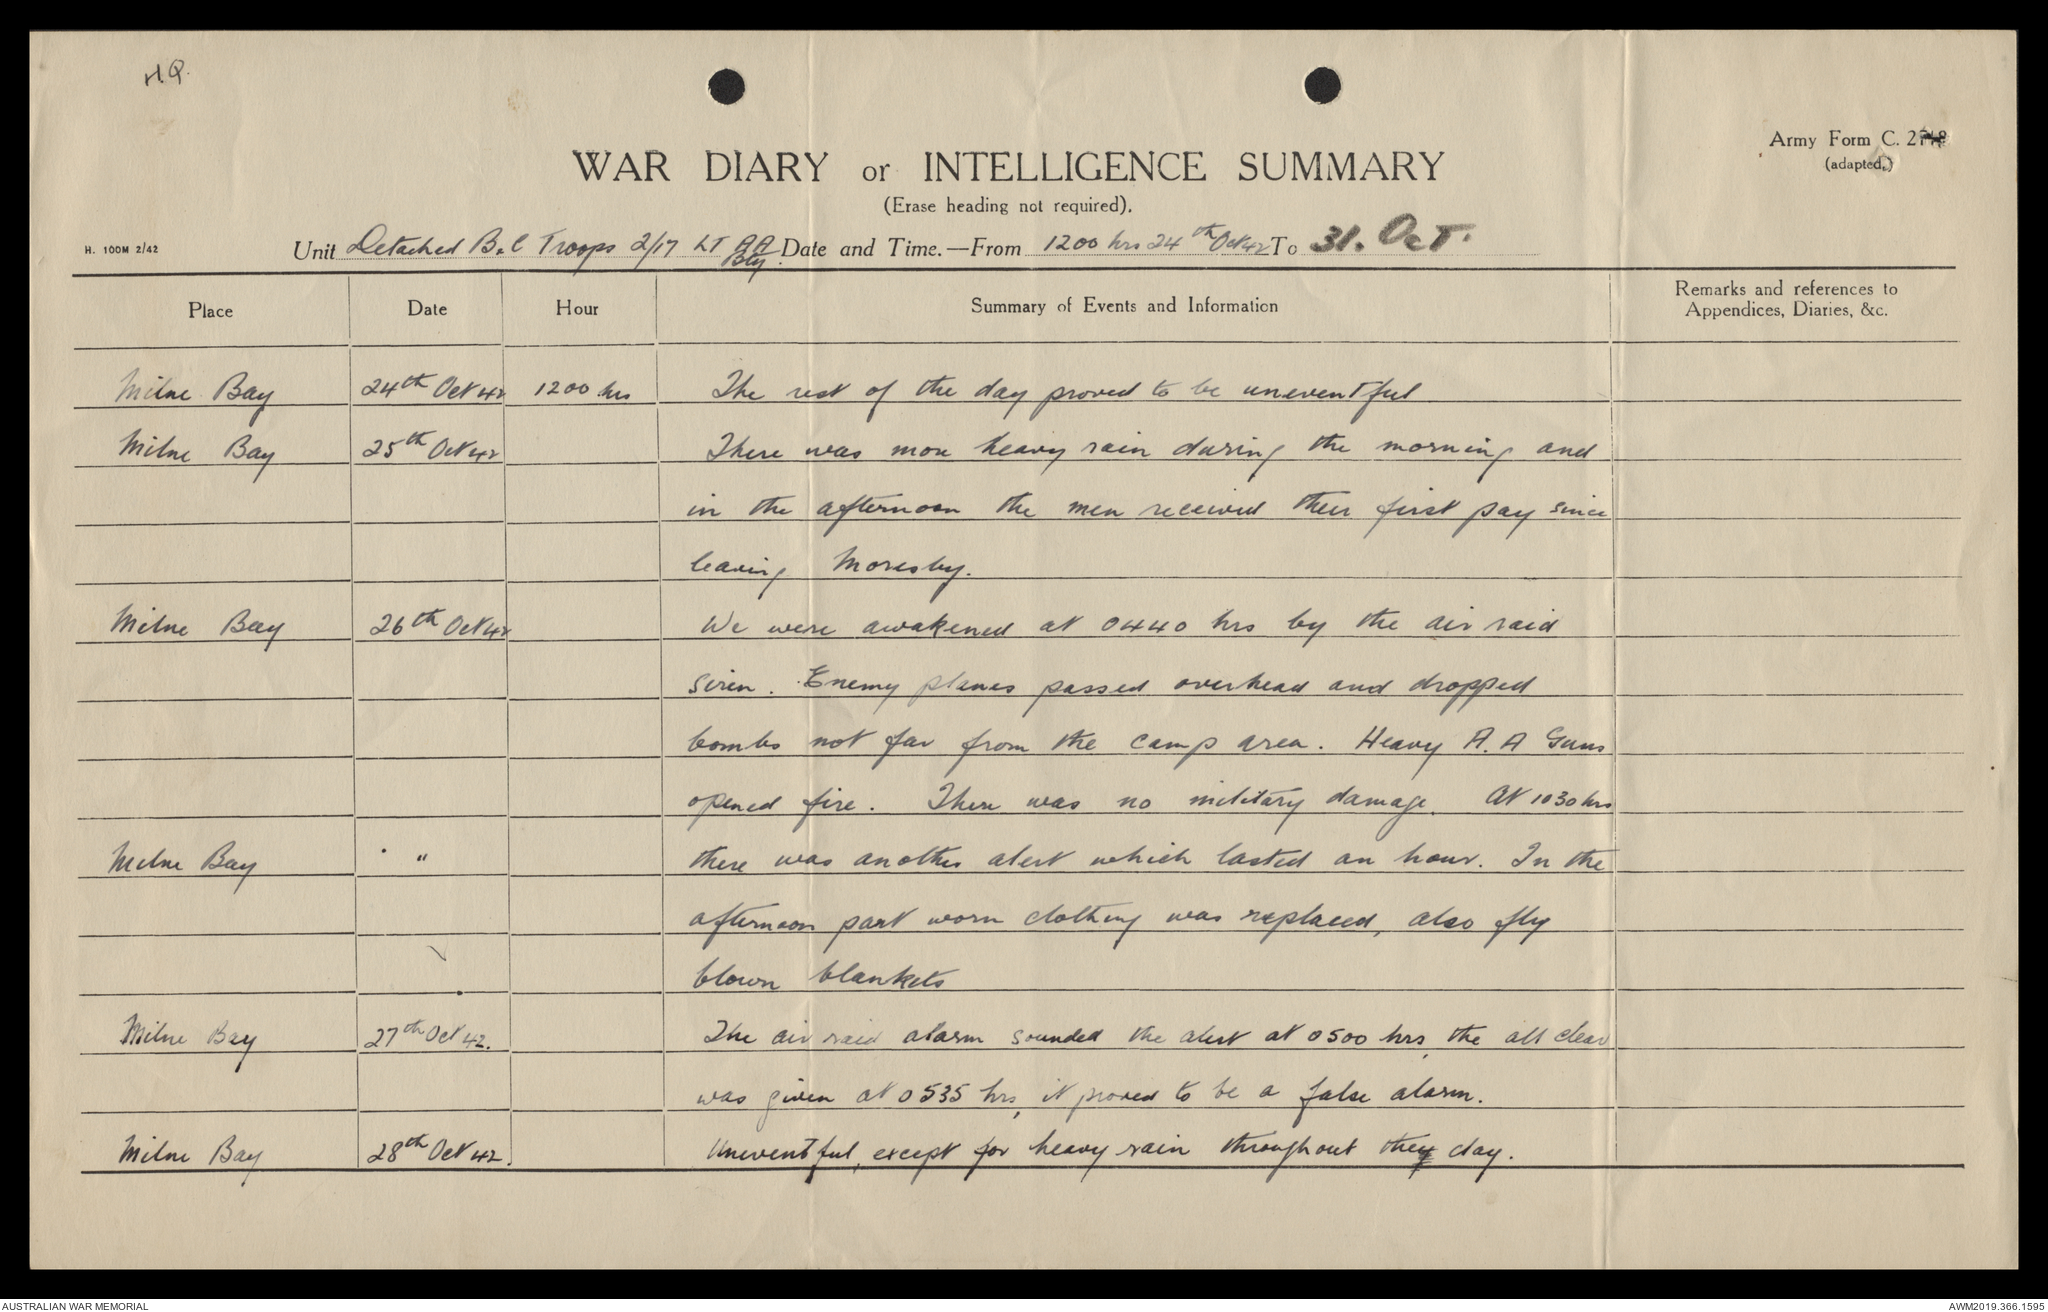 H.Q.
Army Form C. 2118
(adapted.)
WAR DIARY or INTELLIGENCE SUMMARY
(Erase heading not required).
H. 100M 2/42
Unit Detached B & C Troops 2/17 LT AA Bty. Date and Time.—From 1200 hrs 24th Oct 42 To 31. Oct.
Place Date Hour Summary of Events and Information Remarks and references to
Appendices, Diaries, &c.
Milne Bay 24th Oct 42 1200 hrs The rest of the day proved to be uneventful
Milne Bay 25th Oct 42 There was more heavy rain during the morning and
in the afternoon the men received their first pay since
leaving Moresby.
Milne Bay 26th Oct 42 We were awakened at 0440 hrs by the air raid
siren. Enemy planes passed overhead and dropped
bombs not far from the camp area. Heavy A.A Guns
opened fire. There was no military damage. At 1030 hrs
Milne Bay " there was another alert which lasted an hour. In the
afternoon part worn clothing was replaced, also fly
blown blankets
Milne Bay 27th Oct 42. The air raid alarm sounded the alert at 0500 hrs, the all clear
was given at 0535 hrs, it proved to be a false alarm.
Milne Bay 28th Oct 42. Uneventful, except for heavy rain throughout the day.
AUSTRALIAN WAR MEMORIAL
AWM2019.366.1595